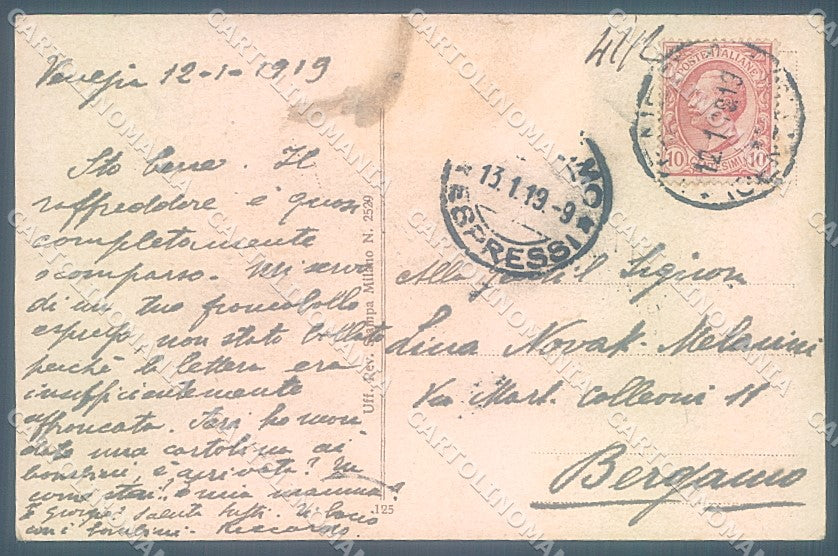 Venezia 12-1-1919
Sto bene. Il
raffreddore è quasi
completamente
scomparso. Mi servo
di un tuo francobollo
espresso non stato bollato
perchè la lettera era
insufficientemente
affrancata. Ieri ho man-
dato una cartolina ai
bambini, è arrivata? Tu
come stai? e mia mamma?
e Giorgio? Saluta tutti. Ti bacio
con i bambini. Riccardo.
Uff. Rev. Stampa Milano N. 2529
125
POSTE ITALIANE
10 CENTESIMI 10
12.1.1919
13.1.19.-9
ESPRESSI
Alla gentil Signora
Lina Novak-Melanini
Via Mart. Colleoni 11
Bergamo
CARTOLINOMANIA